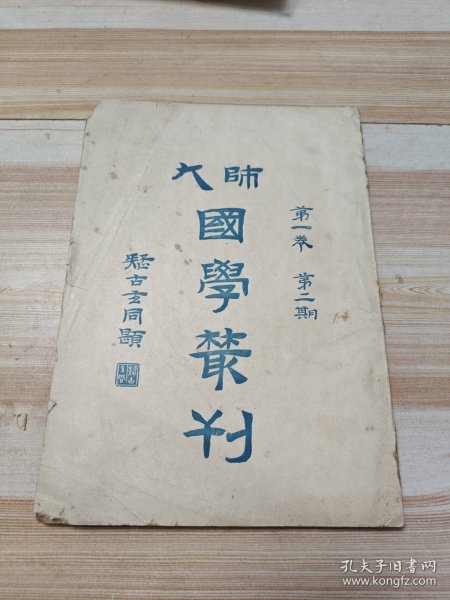 師大
國學叢刊
第一卷 第二期
疑古玄同題
孔夫子旧书网
www.kongfz.com